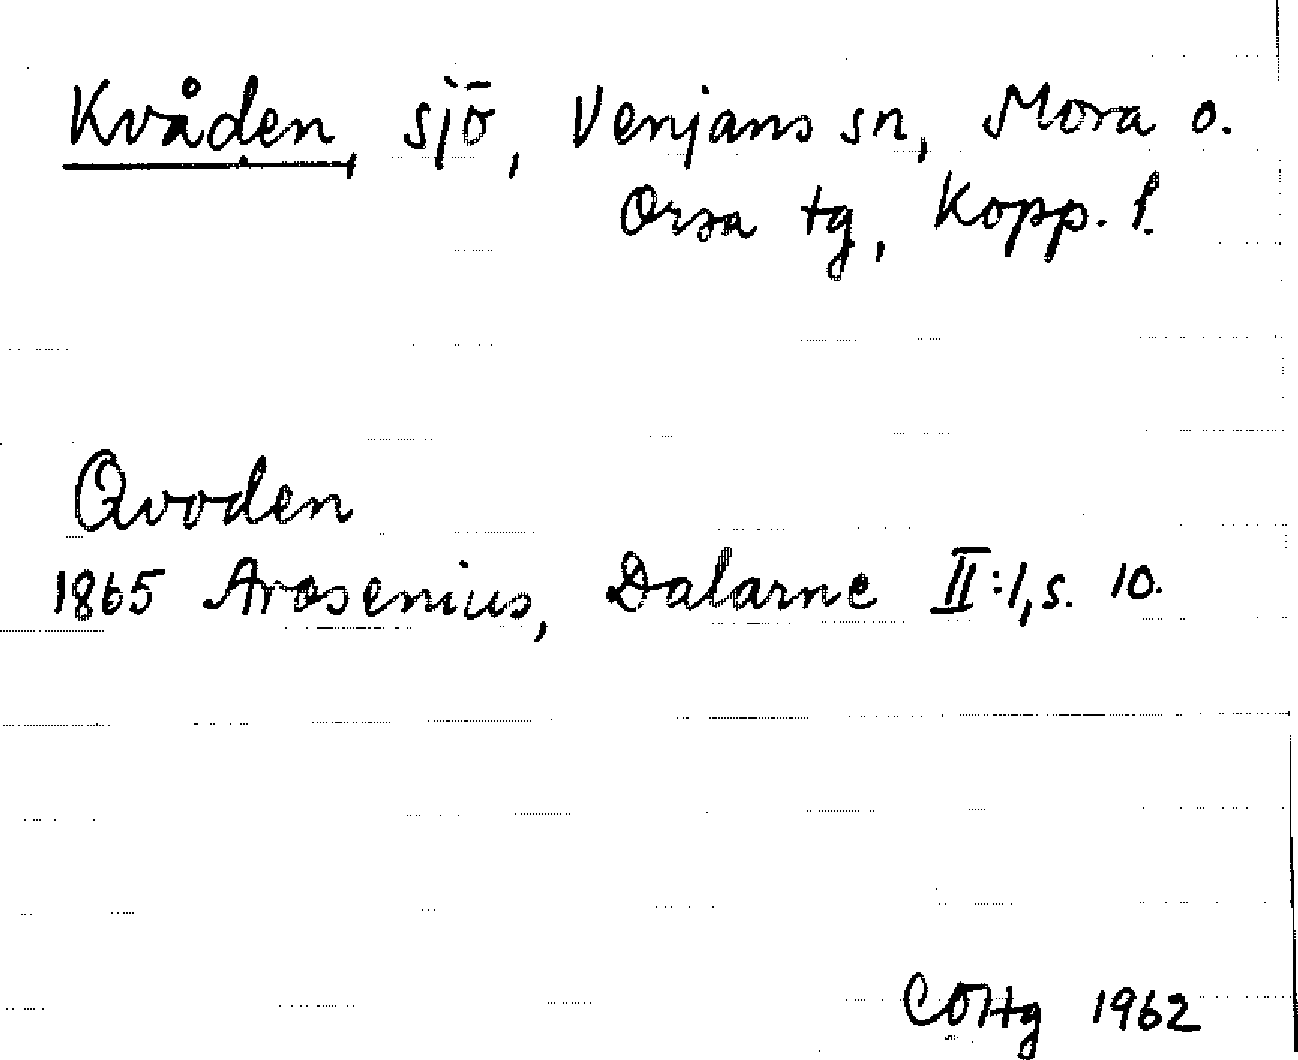 Kvåden, sjö, Venjans sn, Mora o.
Orsa tg, Kopp. l.
Qvoden
1865 Arosenius, Dalarne II:1, s. 10.
CÖHg 1962